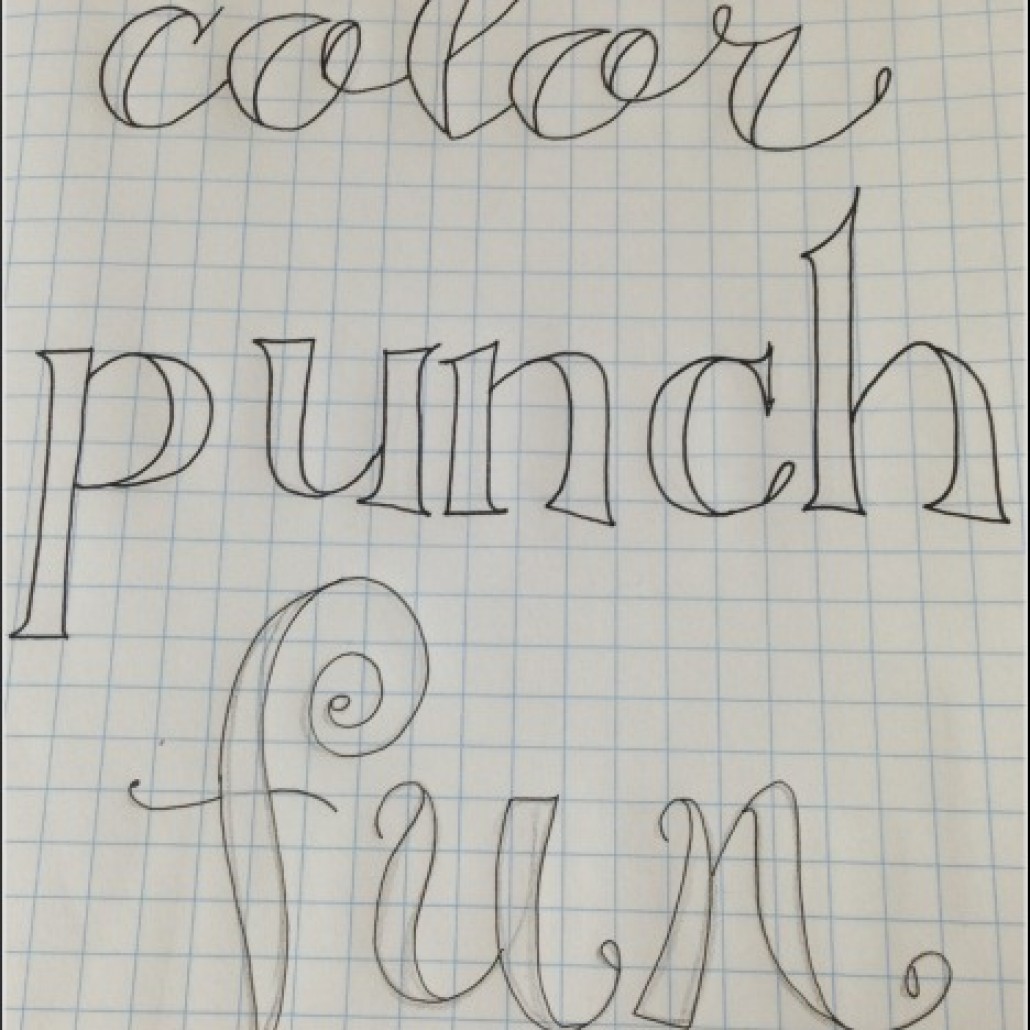 color
punch
fun